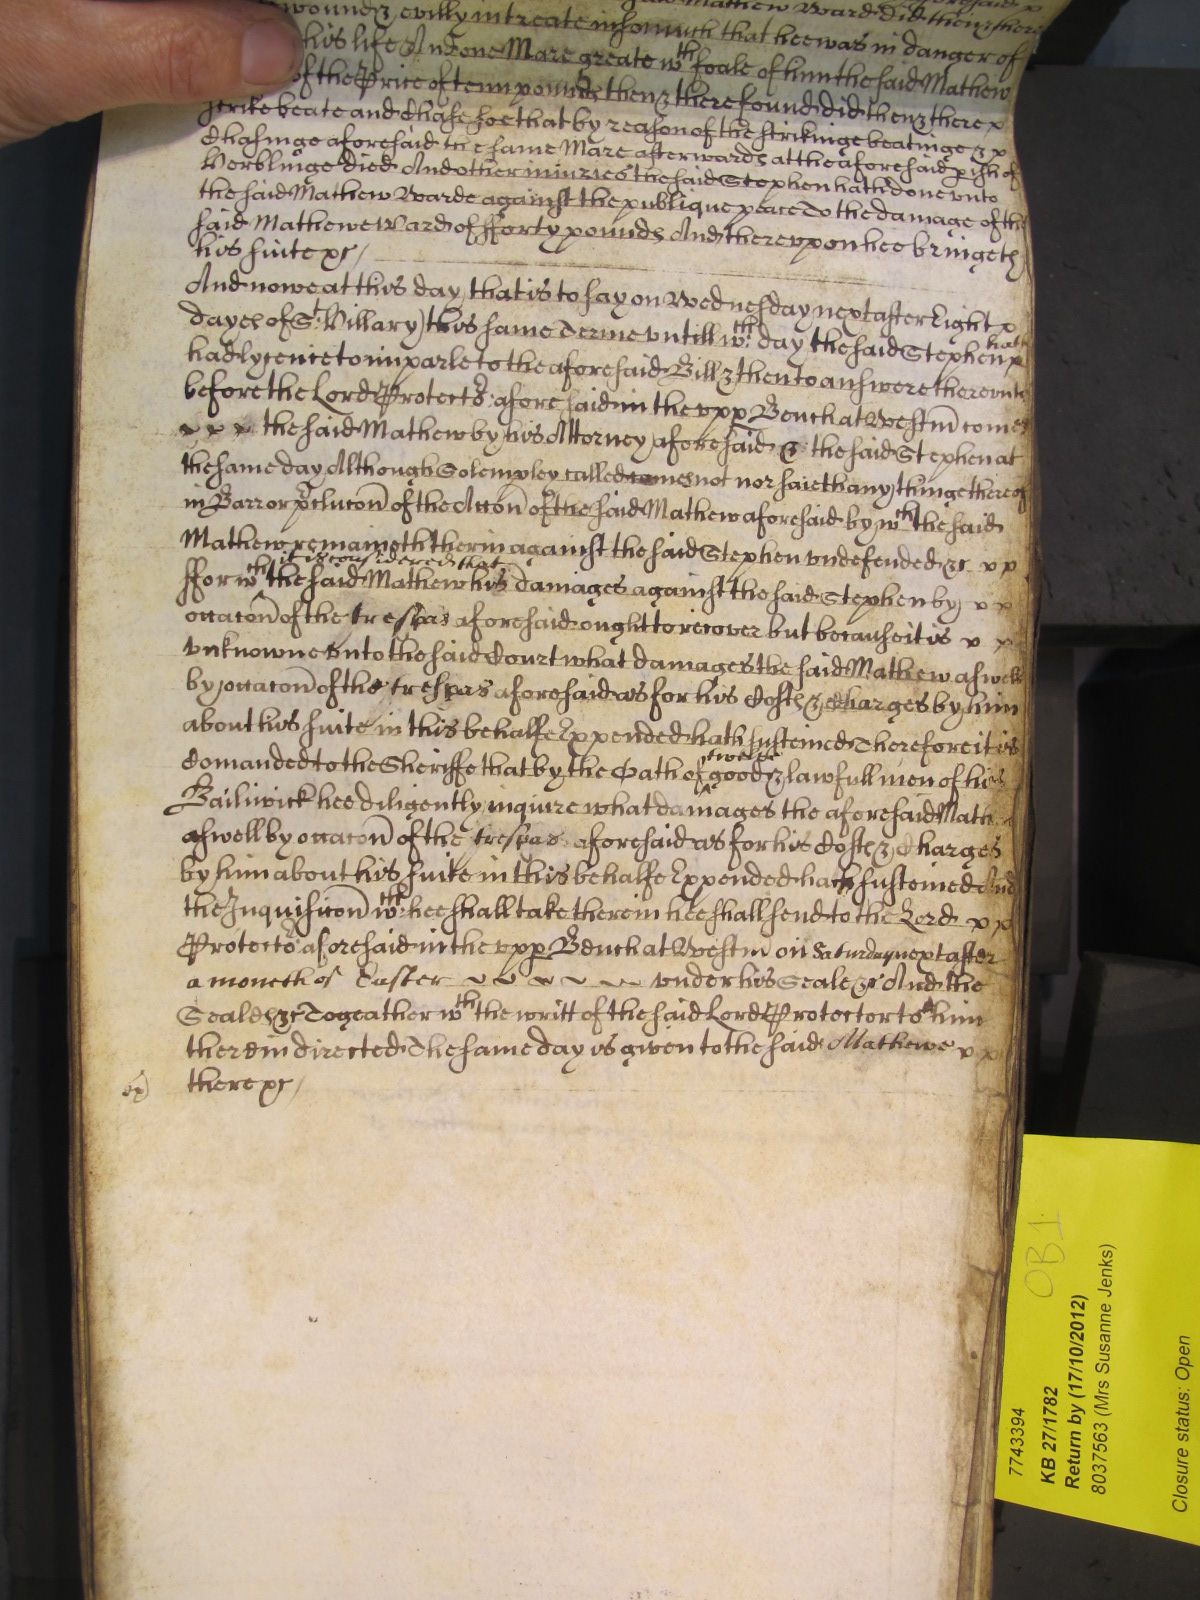 Mathew Ward did then & there
wound & evilly intreate insomuch that hee was in danger of
his life And one Mare greate wth foale of him the said Mathew
of the Price of tenn pounds then & there found did then & there
strike beate and Chase soe that by reason of the strikinge beatinge &
Chasinge aforesaid the same Mare afterwards at the aforesaid pish of
died And other iniuries the said Stephen hath done vnto
the said Mathew Warde against the publique peace To the damage of the
said Mathewe Ward of fforty pounds And therevpon hee bringeth
his suite &c/
And nowe at this day that is to say on Wednesday next after Eight
dayes of St. Hillary this same Terme vntill wch. day the said Stephen hath
had lycence to imparle to the aforesaid Bill & then to answere therevnto
before the Lord Protector: aforesaid in the vpp Bench at Westm comes
the said Mathew by his Attorney aforesaid & the said Stephen at
the same day Although Solempley called comes not nor saieth any thinge thereof
in Barr or pclucon of the Accon of the said Mathew aforesaid by wch the said
Mathew remaineth therin against the said Stephen vndefended &c
it is considered that
ffor wch the said Mathew his damages against the said Stephen by
occacon of the trespas aforesaid ought to recover but because it is
vnknowne vnto the said Court what damages the said Mathew aswell
by occacon of the trespas aforesaid as for his Costs & Charges by him
about his suite in this behalfe Expended hath susteined Therefore it is
twelve
Comanded to the Sheriffe that by the Oath of good & lawfull men of his
Bailiwick hee diligently inquire what damages the aforesaid Math
aswell by occacon of the trespas aforesaid as for his Costs & Charges
by him about his suite in this behalfe Expended hath susteined And
the Inquisicon wch: hee shall take therein hee shall send to the Lord
Protector aforesaid in the vpp Bench at Westm on Saturday next after
a moneth of Easter vnder his Seale &c And the
Seales &c Togeather wth the writt of the said Lord Protector to him
therein directed The same day is given to the said Mathewe
there &c/
OB1
7743394
KB 27/1782
Return by (17/10/2012)
8037563 (Mrs Susanne Jenks)
Closure status: Open